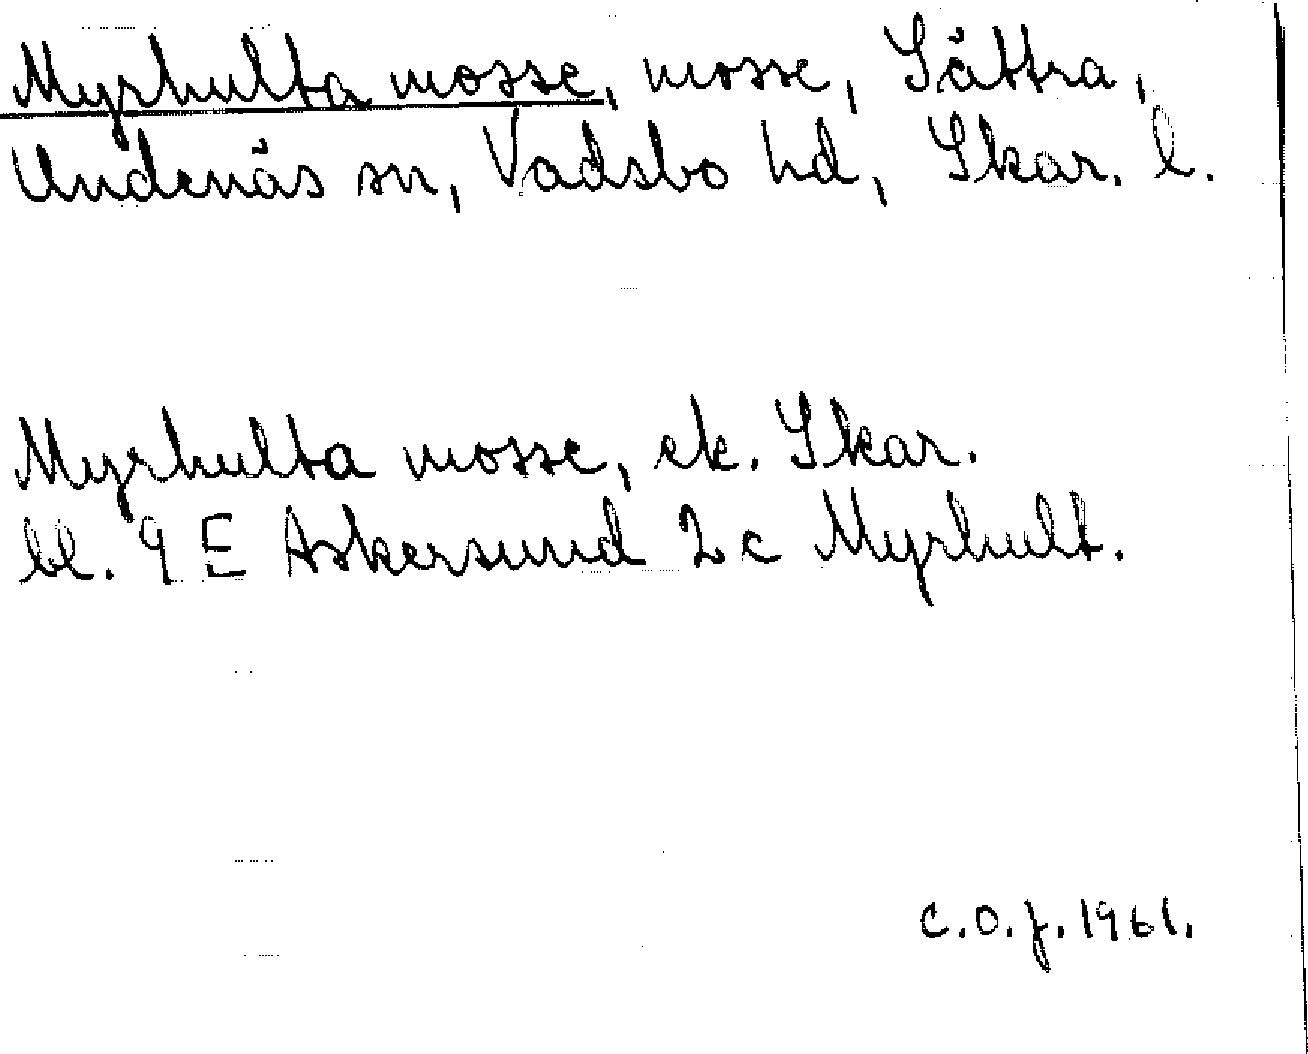 Myrhulta mosse, mosse, Sätra,
Undenäs sn, Vadsbo hd, Skar. l.
Myrhulta mosse, ek. Skar.
bl. 9 E Askersund 2 c Myrhult.
C.O.J. 1961.